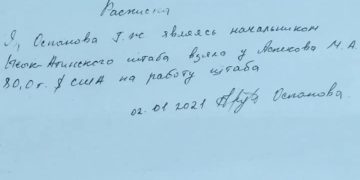 Расписка
Я, Оспанова Г.Ж являясь начальником
Чок-Атинского штаба взяла у Апекова М.А.
80,0т. $ США на работу штаба
02.01 2021 Оспанова.